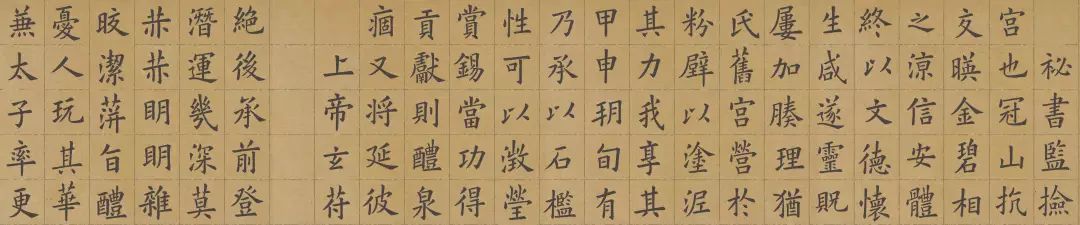 祕書監撿
宮也冠山抗
交暎金碧相
之涼信安體
終以文德懷
生咸遂靈貺
屢加腠理猶
氏舊宮營於
粉壁以塗泥
其力我享其
甲申朔旬有
乃承以石檻
性可以澂瑩
賞錫當功得
貢獻則醴泉
痼又将延彼
上帝玄苻
絕後承前登
潛運幾深莫
赫赫明明雜
晈潔蓱旨醴
憂人玩其華
兼太子率更